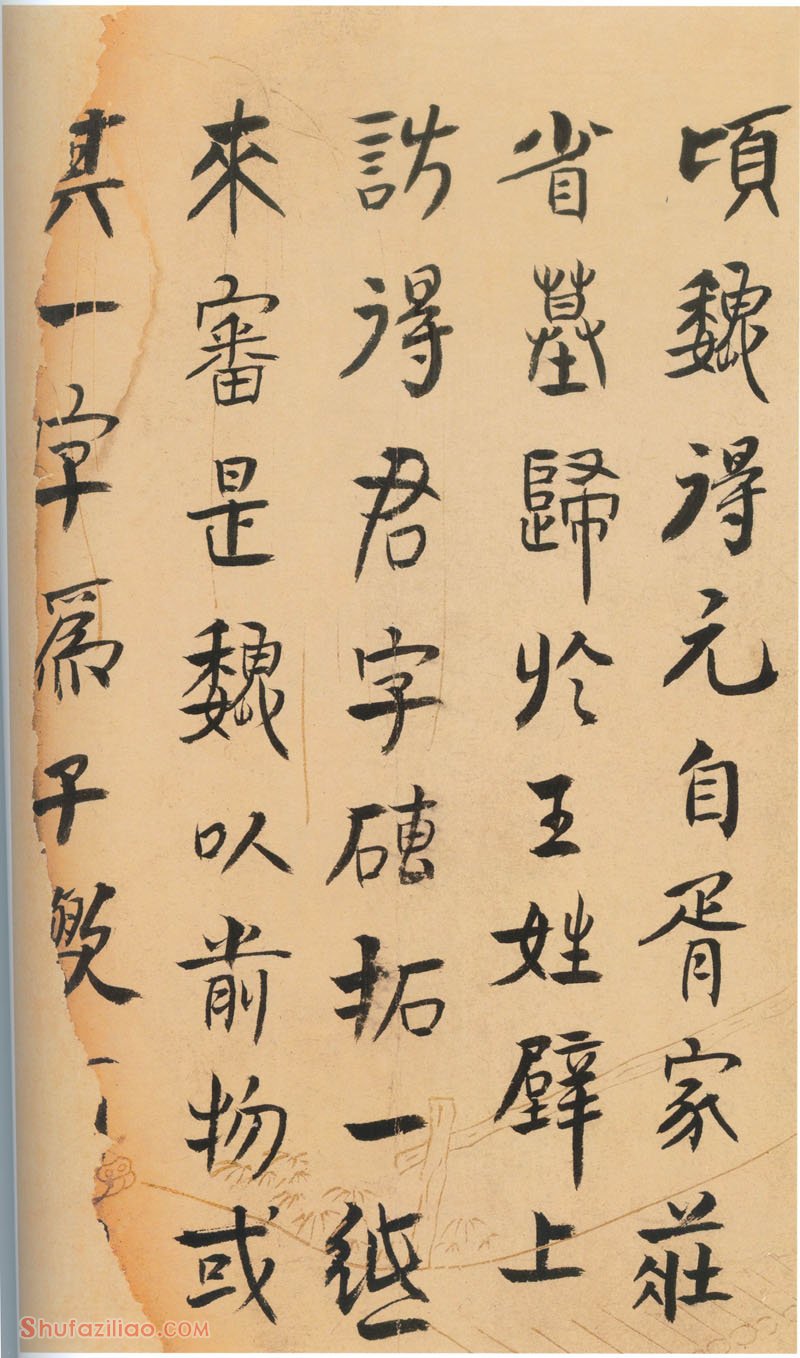 頃魏得元自胥家莊
省墓歸於王姓壁上
訪得君字磚拓一
來審是魏以前物或
其一字爲子
Shufaziliao.COM